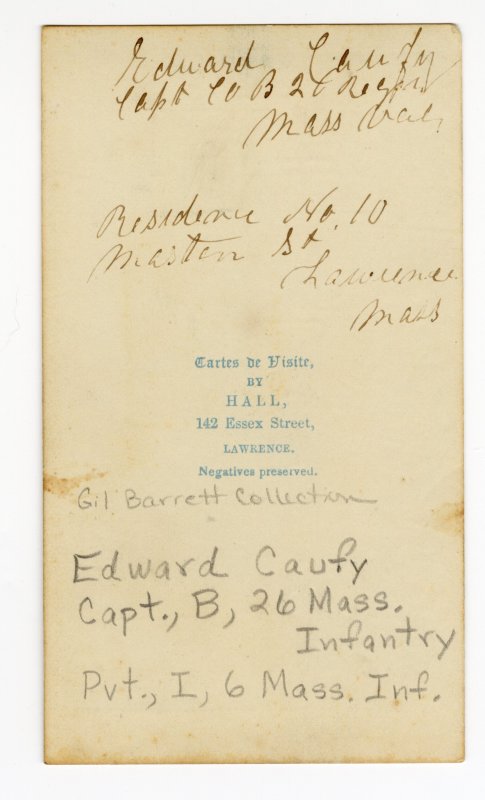 Edward Caufy
Capt Co B 26 Regt
Mass Vol,
Residence No. 10
St
Lawrence
Mass
Cartes de Visite,
BY
HALL,
142 Essex Street,
LAWRENCE.
Negatives preserved.
Gil Barrett Collection
Edward Caufy
Capt., B, 26 Mass.
Infantry
Pvt., I, 6 Mass. Inf.